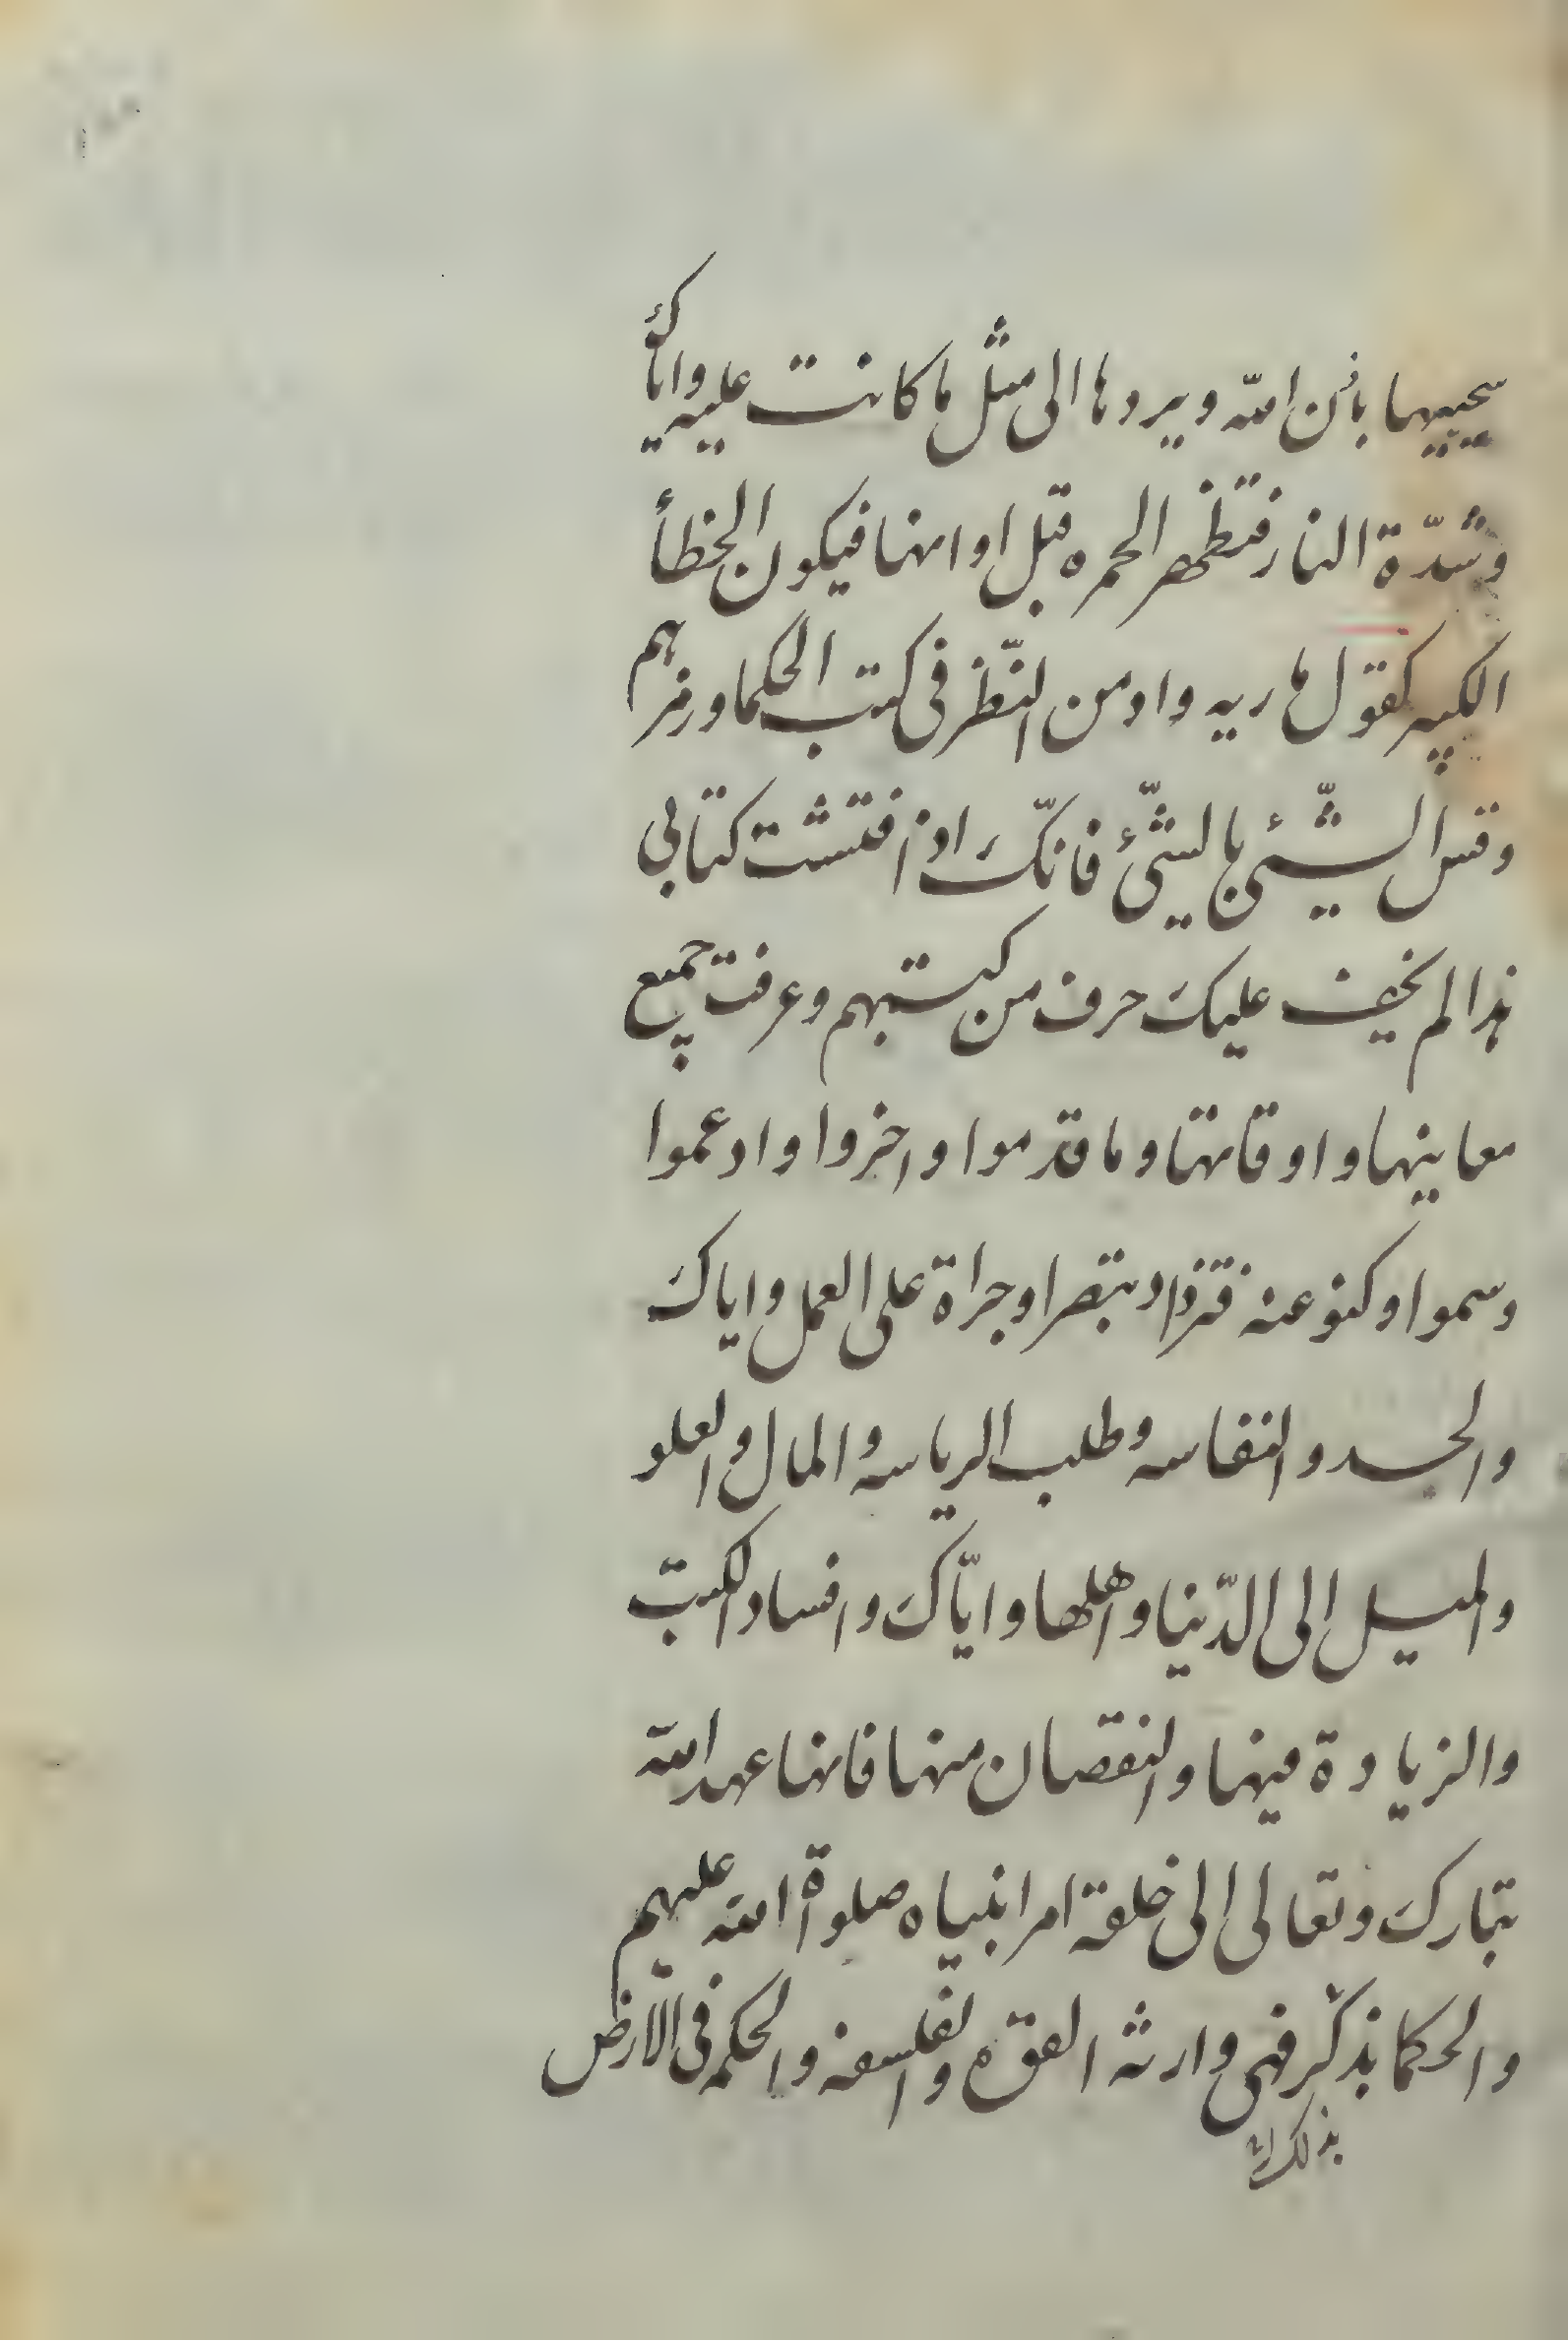 سيحييها باذن الله ويردها الى مثل ما كانت عليه واياك
وشدّة النار فتظهر الحمره قبل اوانها فيكون الخطأ
الكبير كقول ماريه وادمن النّظر فى كتب الحكما ورمزهم
وقس الشّئ بالشّئ فانّكَ اذا فتشت كتابى
هذا لم يخف عليكَ حرف من كتبهم وعرفت جميع
معاينها واوقاتها وما قدموا واخروا وادعموا
وسموا وكنو عنه فتزداد تبصرا وجراة على العمل واياكَ
والحسد والنفاسه وطلب الرياسه والمال والعلو
والميل الى الدّنيا واهلها وايّاكَ وافساد الكتب
والزيادة فيها والنقصان منها فانها عهد الله
تبارك وتعالى الى خلقة امر انبياه صلوة الله عليهم
والحكما بذكر فهى وارثه والفلسفه والحكمه فى الارض
بذلك